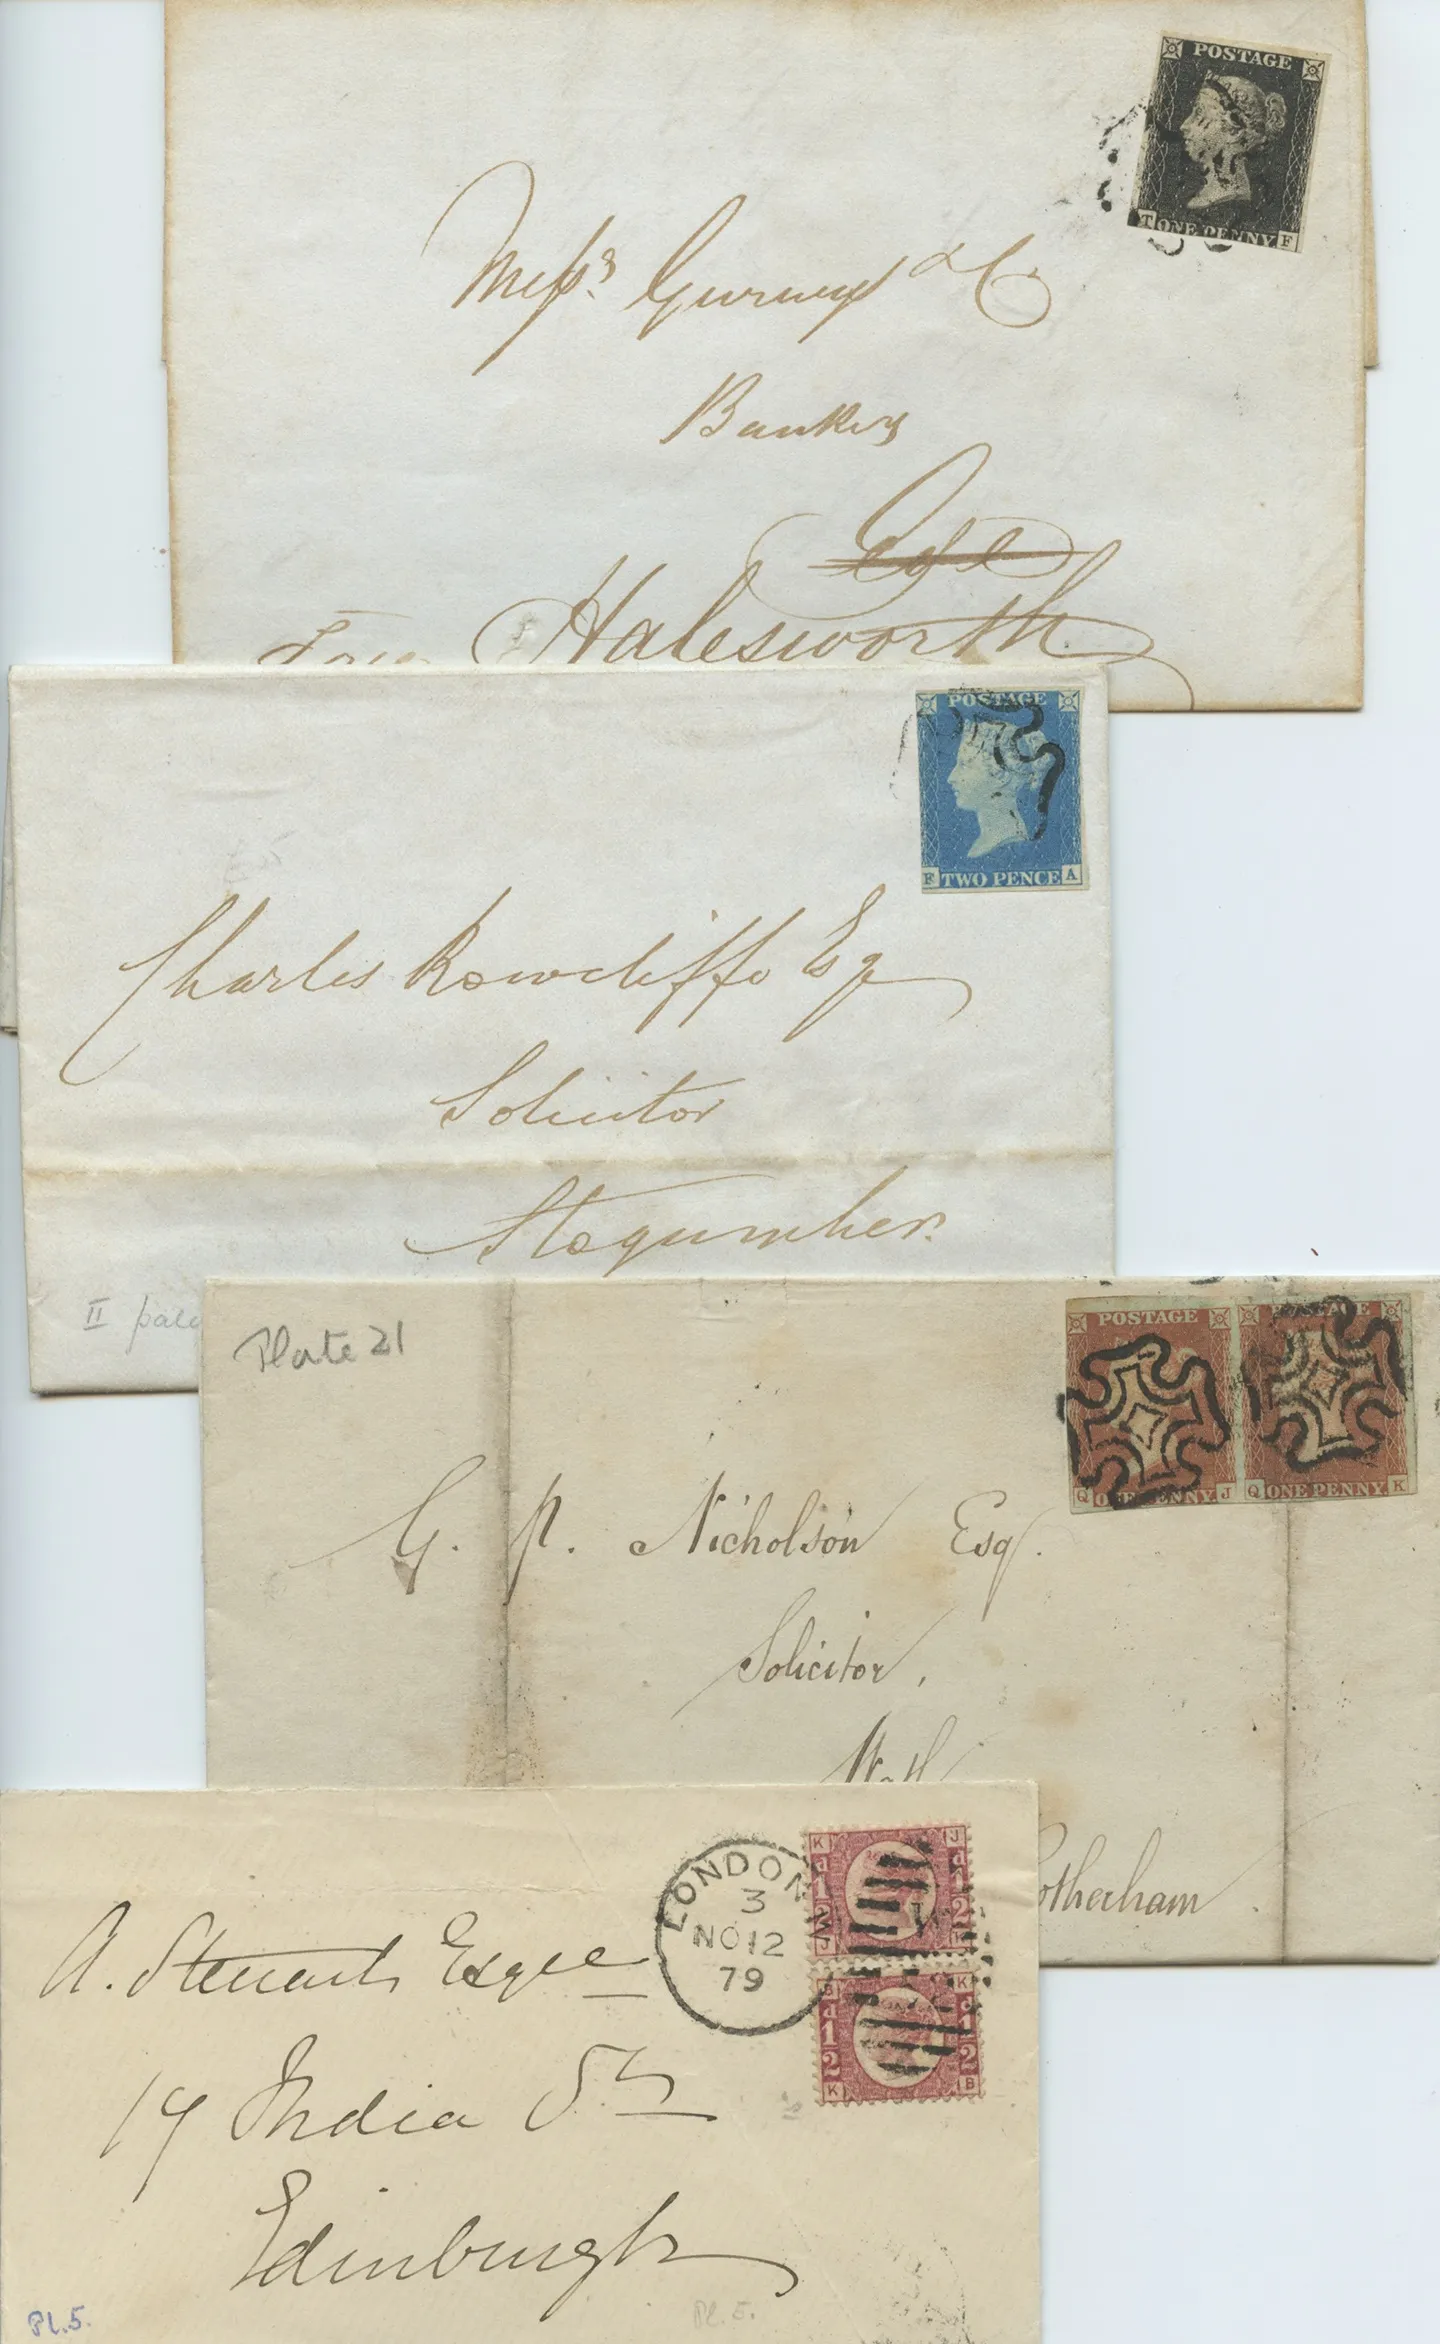 POSTAGE
T ONE PENNY F
Messrs. Gurneys & Co.
Bankers
Eye
Halesworth
POSTAGE
F TWO PENCE A
Charles Rowcliffe Esqr
Solicitor
Stogumber.
II
Plate 21
POSTAGE POSTAGE
Q ONE PENNY J Q ONE PENNY K
G. P. Nicholson Esq.
Solicitor,
Wath
Rotherham
LONDON
3
NO 12
79
K J
d d
1 1
2 2
J K
B K
d d
1 1
2 2
K B
A. Steuart Esqre
19 India St.
Edinburgh
Pl.5.
Pl. 5.